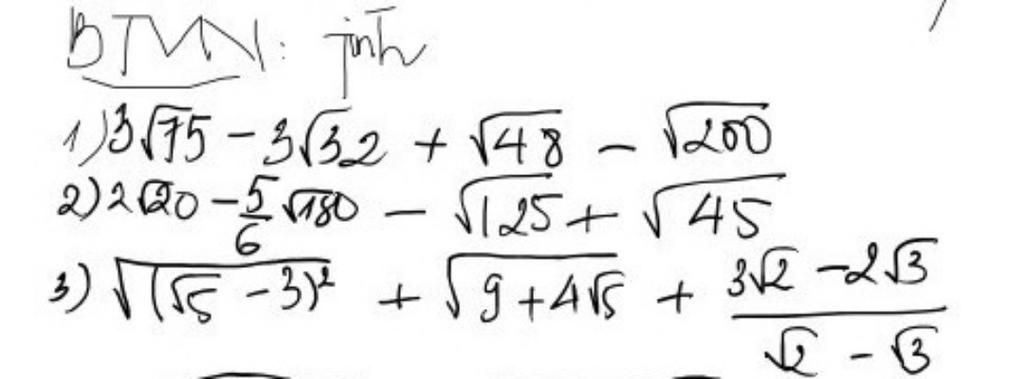 BTVN: Tính
1) 3√75 - 3√32 + √48 - √200
2) 2√20 - 5/6 √180 - √125 + √45
3) √((√5 - 3)²) + √(9 + 4√5) + (3√2 - 2√3)/(√2 - √3)